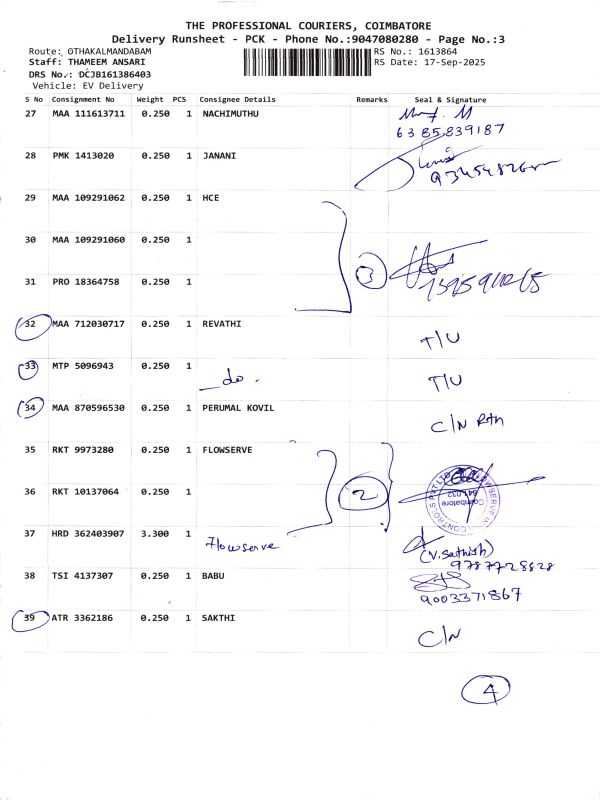 THE PROFESSIONAL COURIERS, COIMBATORE
Delivery Runsheet - PCK - Phone No.:9047080280 - Page No.:3
Route: OTHAKALMANDABAM RS No.: 1613864
Staff: THAMEEM ANSARI RS Date: 17-Sep-2025
DRS No.: DCJB161386403
Vehicle: EV Delivery
S No Consignment No Weight PCS Consignee Details Remarks Seal & Signature
27 MAA 111613711 0.250 1 NACHIMUTHU
6385839187
28 PMK 1413020 0.250 1 JANANI
29 MAA 109291062 0.250 1 HCE
30 MAA 109291060 0.250 1
3
31 PRO 18364758 0.250 1
32 MAA 712030717 0.250 1 REVATHI
T/U
33 MTP 5096943 0.250 1
do. T/U
34 MAA 870596530 0.250 1 PERUMAL KOVIL
C/N Rtn
35 RKT 9973280 0.250 1 FLOWSERVE
36 RKT 10137064 0.250 1
2
Coimbatore
641 032
37 HRD 362403907 3.300 1 Flowserve
(V. Sathish)
9787725828
38 TSI 4137307 0.250 1 BABU
9003371867
39 ATR 3362186 0.250 1 SAKTHI
C/N
4